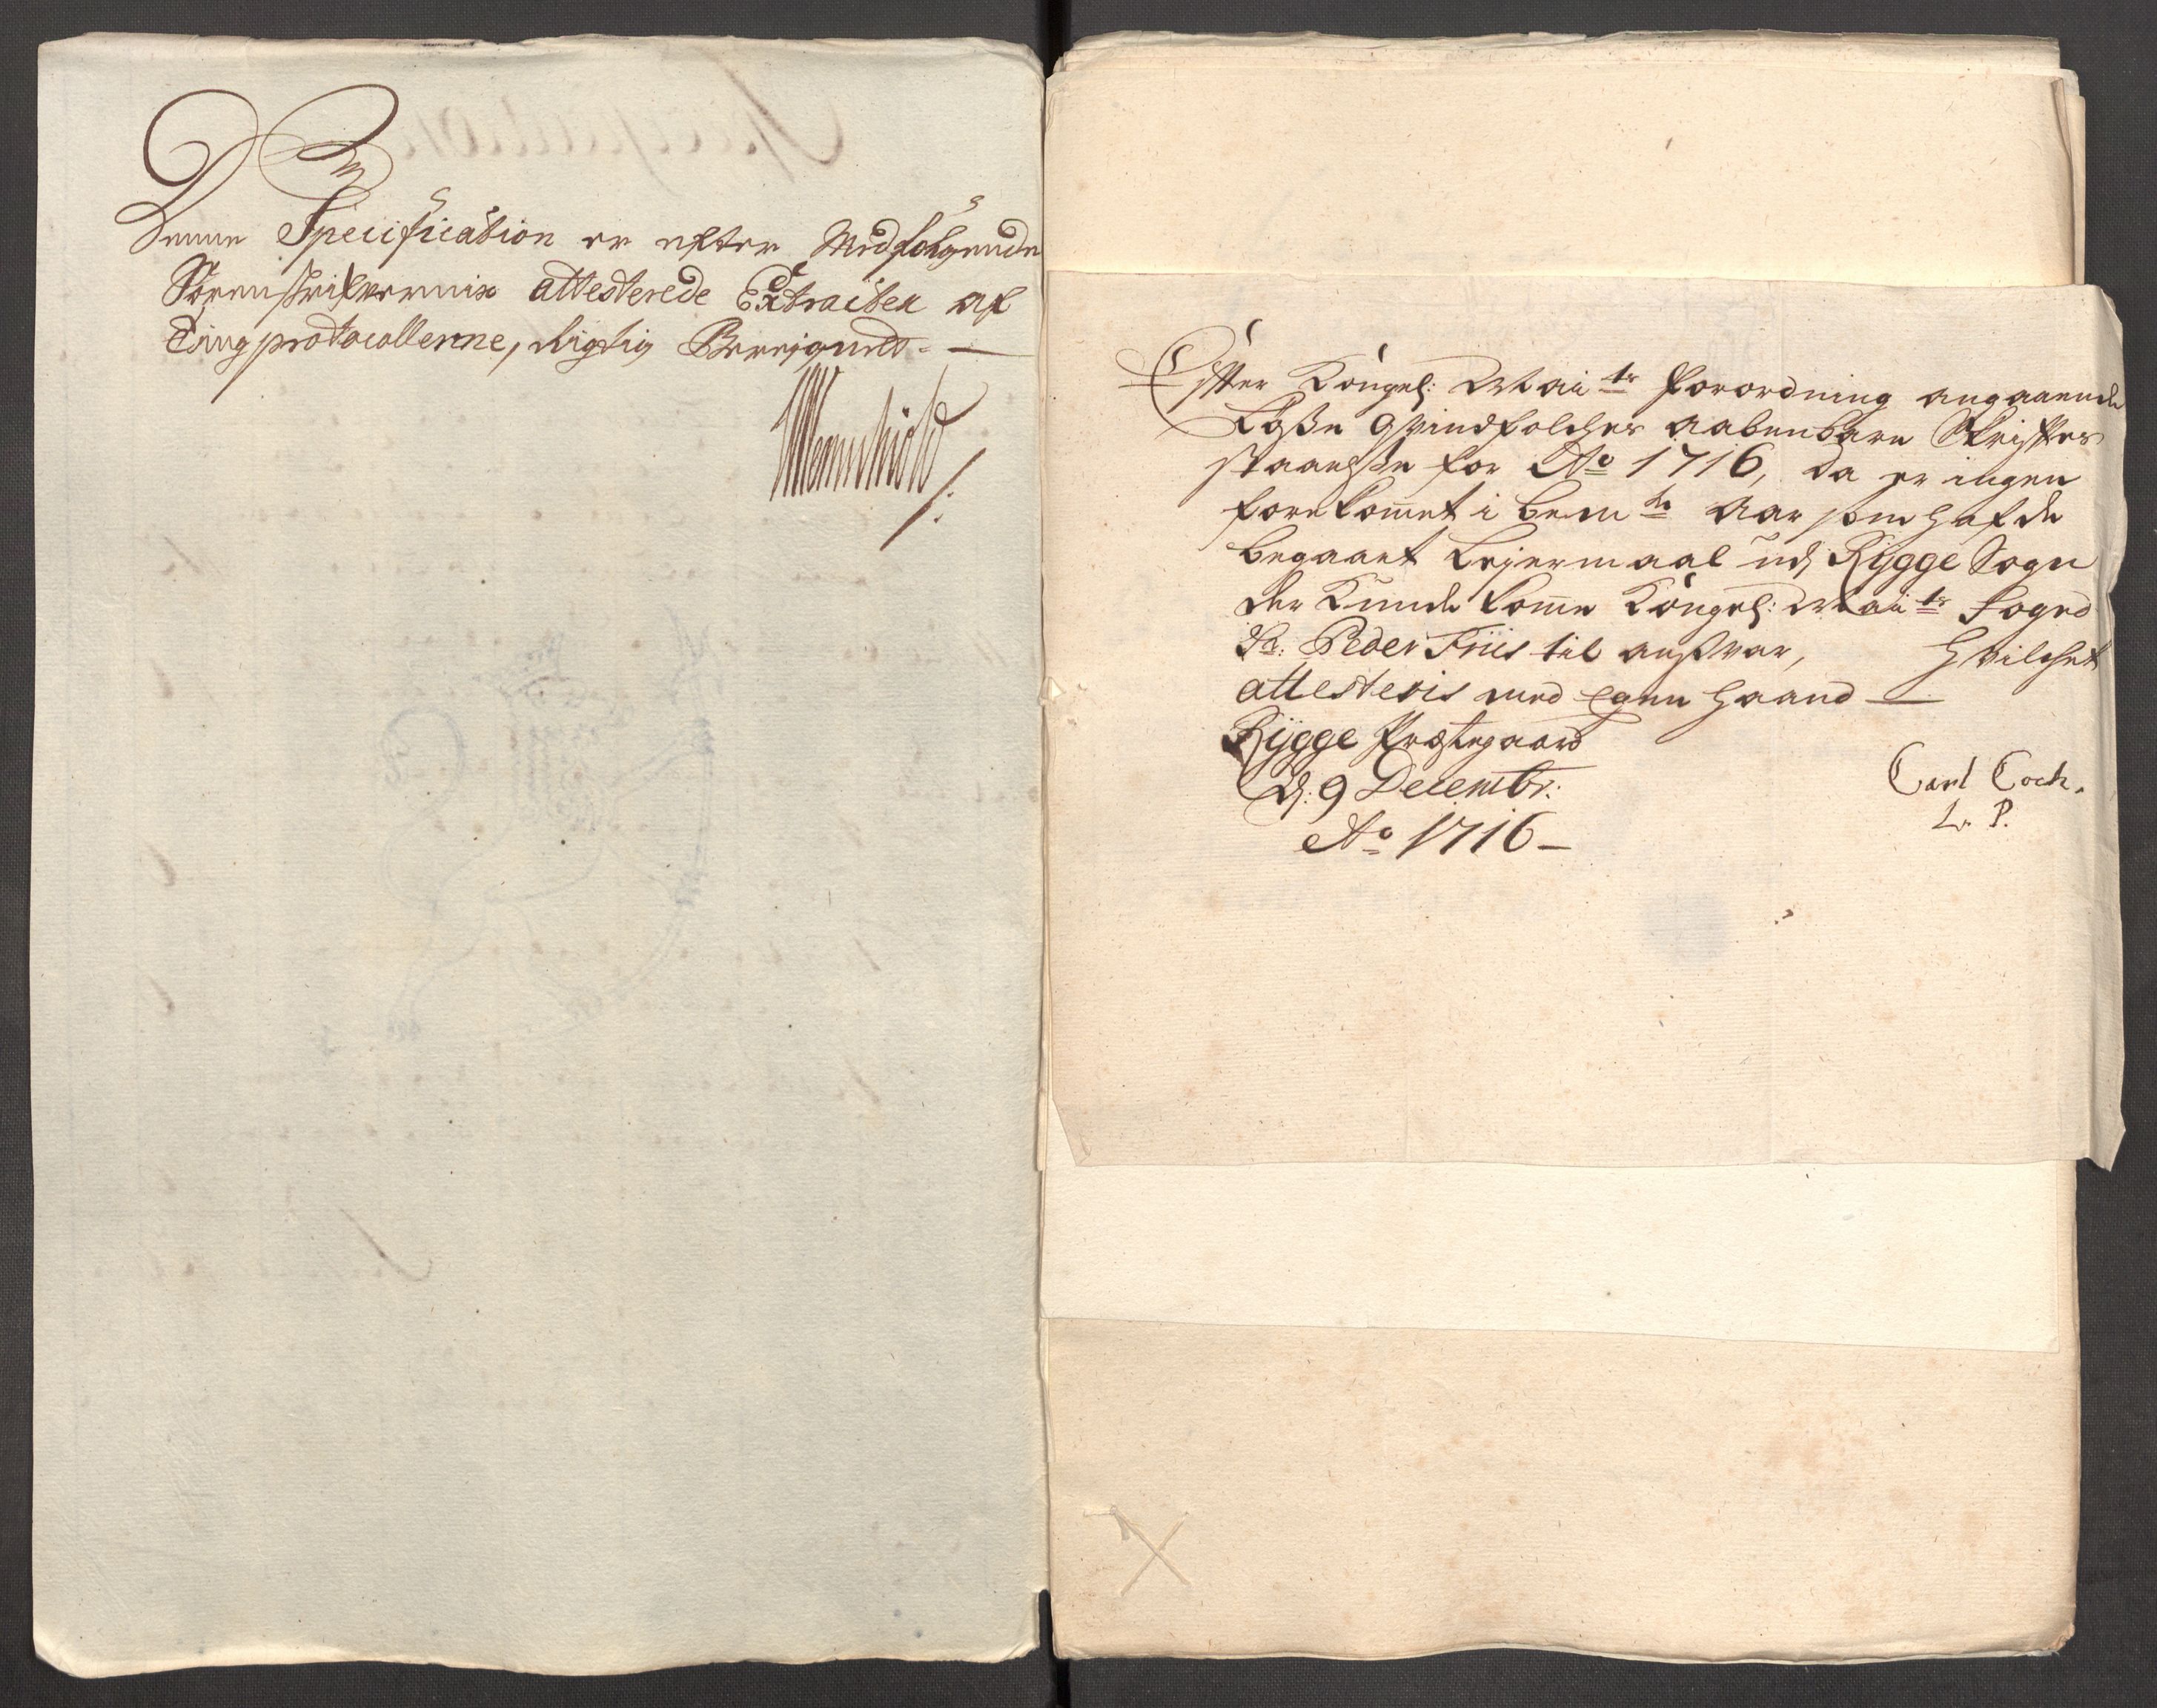 Denne Specification er efter Medfølgende
Sorenskrifvernis attesterede Extracter af
Tingprotocollerne, Rigtig Beregnet. —
Effter Kongel: Maiits forordning angaaende
Løsse Qvindfolches aabenbare Skrifftes
staaelsse for Ao 1716, da er ingen
forekomet i bemte Aar som hafde
begaaet Leyermaal udj Rygge Sogn
der kunde kome Kongel: Maiits foged
Sr: Peder Friis til ansvar, Hvilchet
attesteris med egen haand —
Rygge Præstegaard
d: 9 Decembr:
Ao 1716 –
Carl Coch.
L. P.